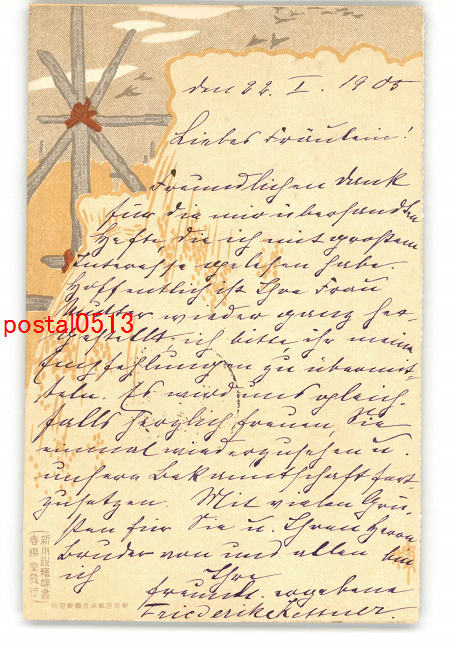 den 22. I. 1905
Liebes Fräulein!
Freundlichen Dank
für die mir übersandten
Hefte, die ich mit großem
Interesse gelesen habe.
Hoffentlich ist Ihre Frau
Mutter wieder ganz her-
gestellt, ich bitte ihr meine
Empfehlungen zu übermit-
teln. Es wird uns gleich-
falls herzlich freuen, Sie
einmal wiederzusehen u.
unsere Bekanntschaft fort-
zusetzen. Mit vielen Grü-
ßen für Sie u. Ihren Herrn
Bruder von uns allen bin
ich Ihre
freundl. ergebene
Friederike Kettner.
postal0513
新小説繪葉書
(春陽堂發行)